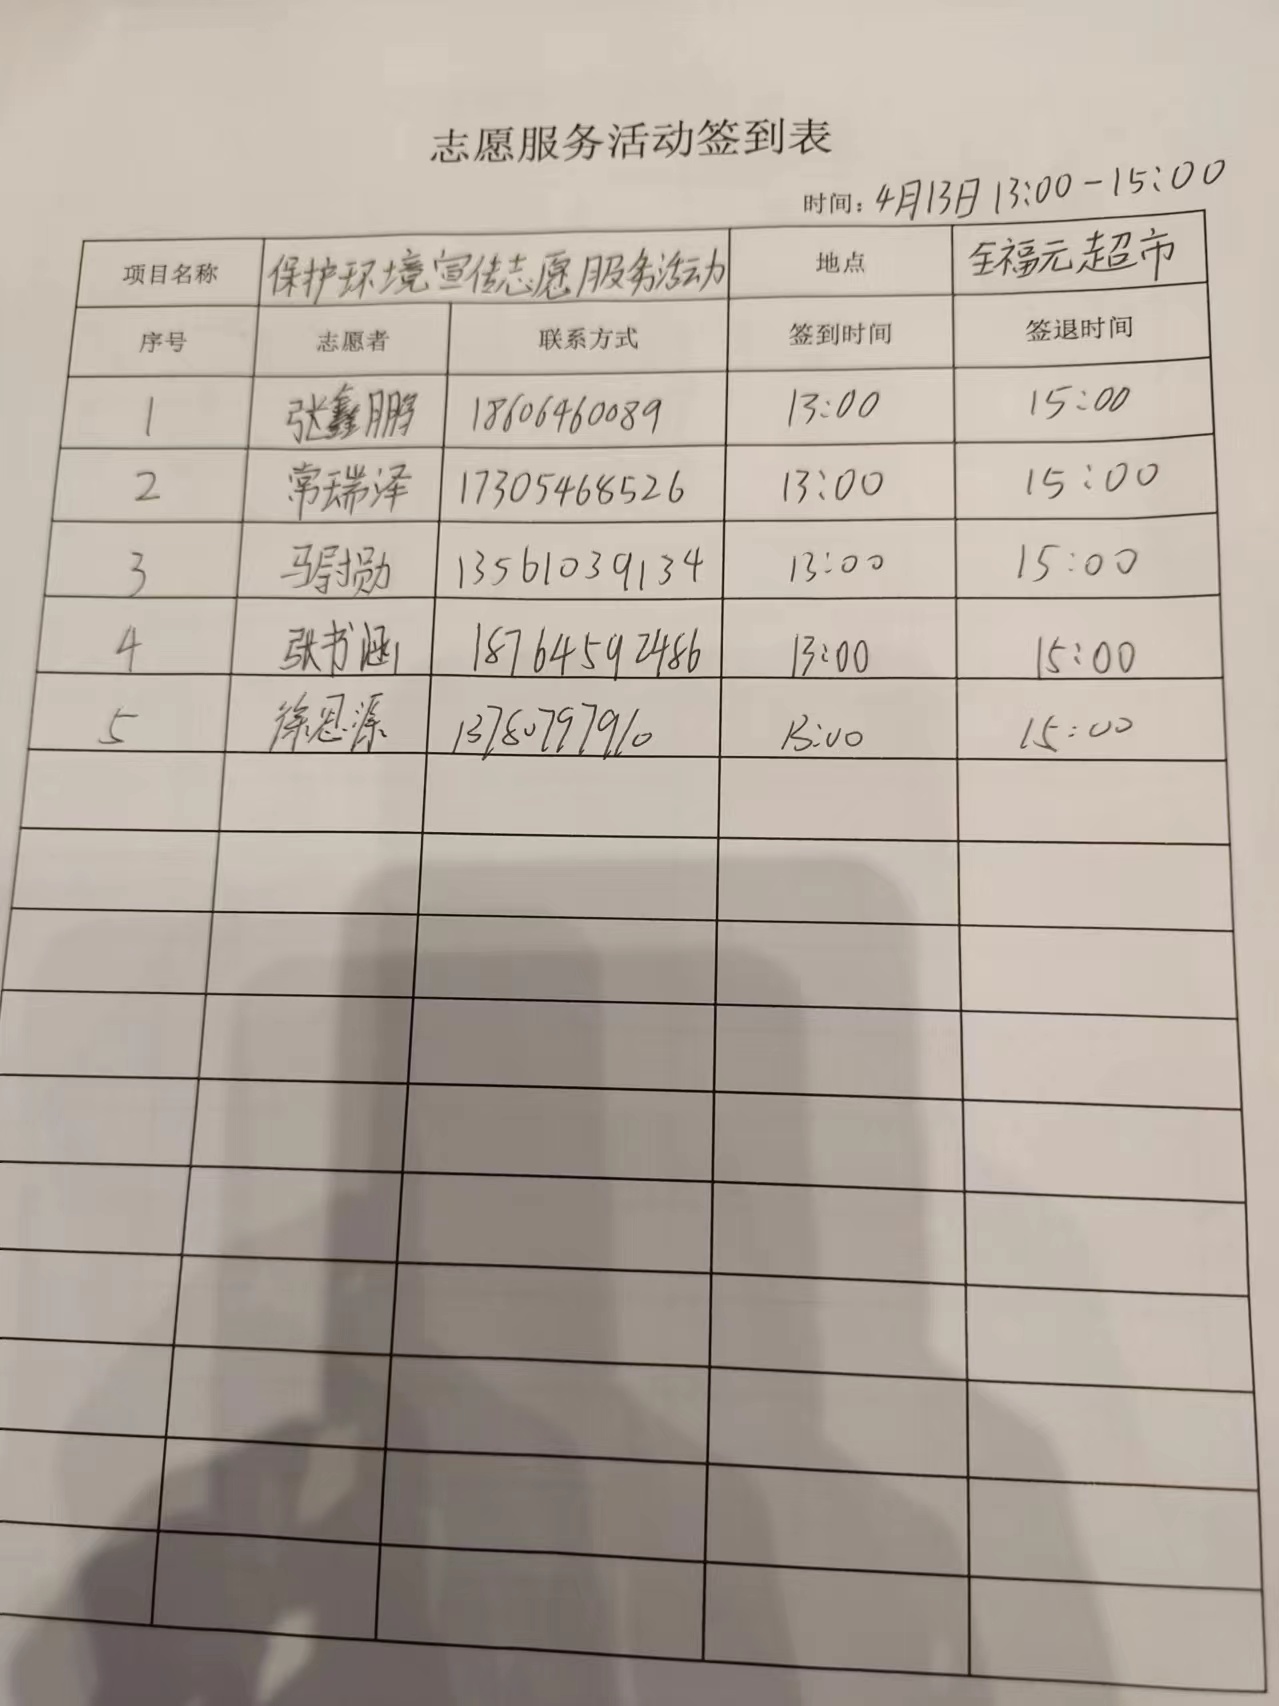 志愿服务活动签到表
时间：4月13日 13:00-15:00
项目名称 保护环境宣传志愿服务活动 地点 全福元超市
序号 志愿者 联系方式 签到时间 签退时间
1 张鑫鹏 18606460089 13:00 15:00
2 常瑞泽 17305468526 13:00 15:00
3 马尉勋 13561039134 13:00 15:00
4 张书涵 18764592486 13:00 15:00
5 徐恩源 13780797910 13:00 15:00